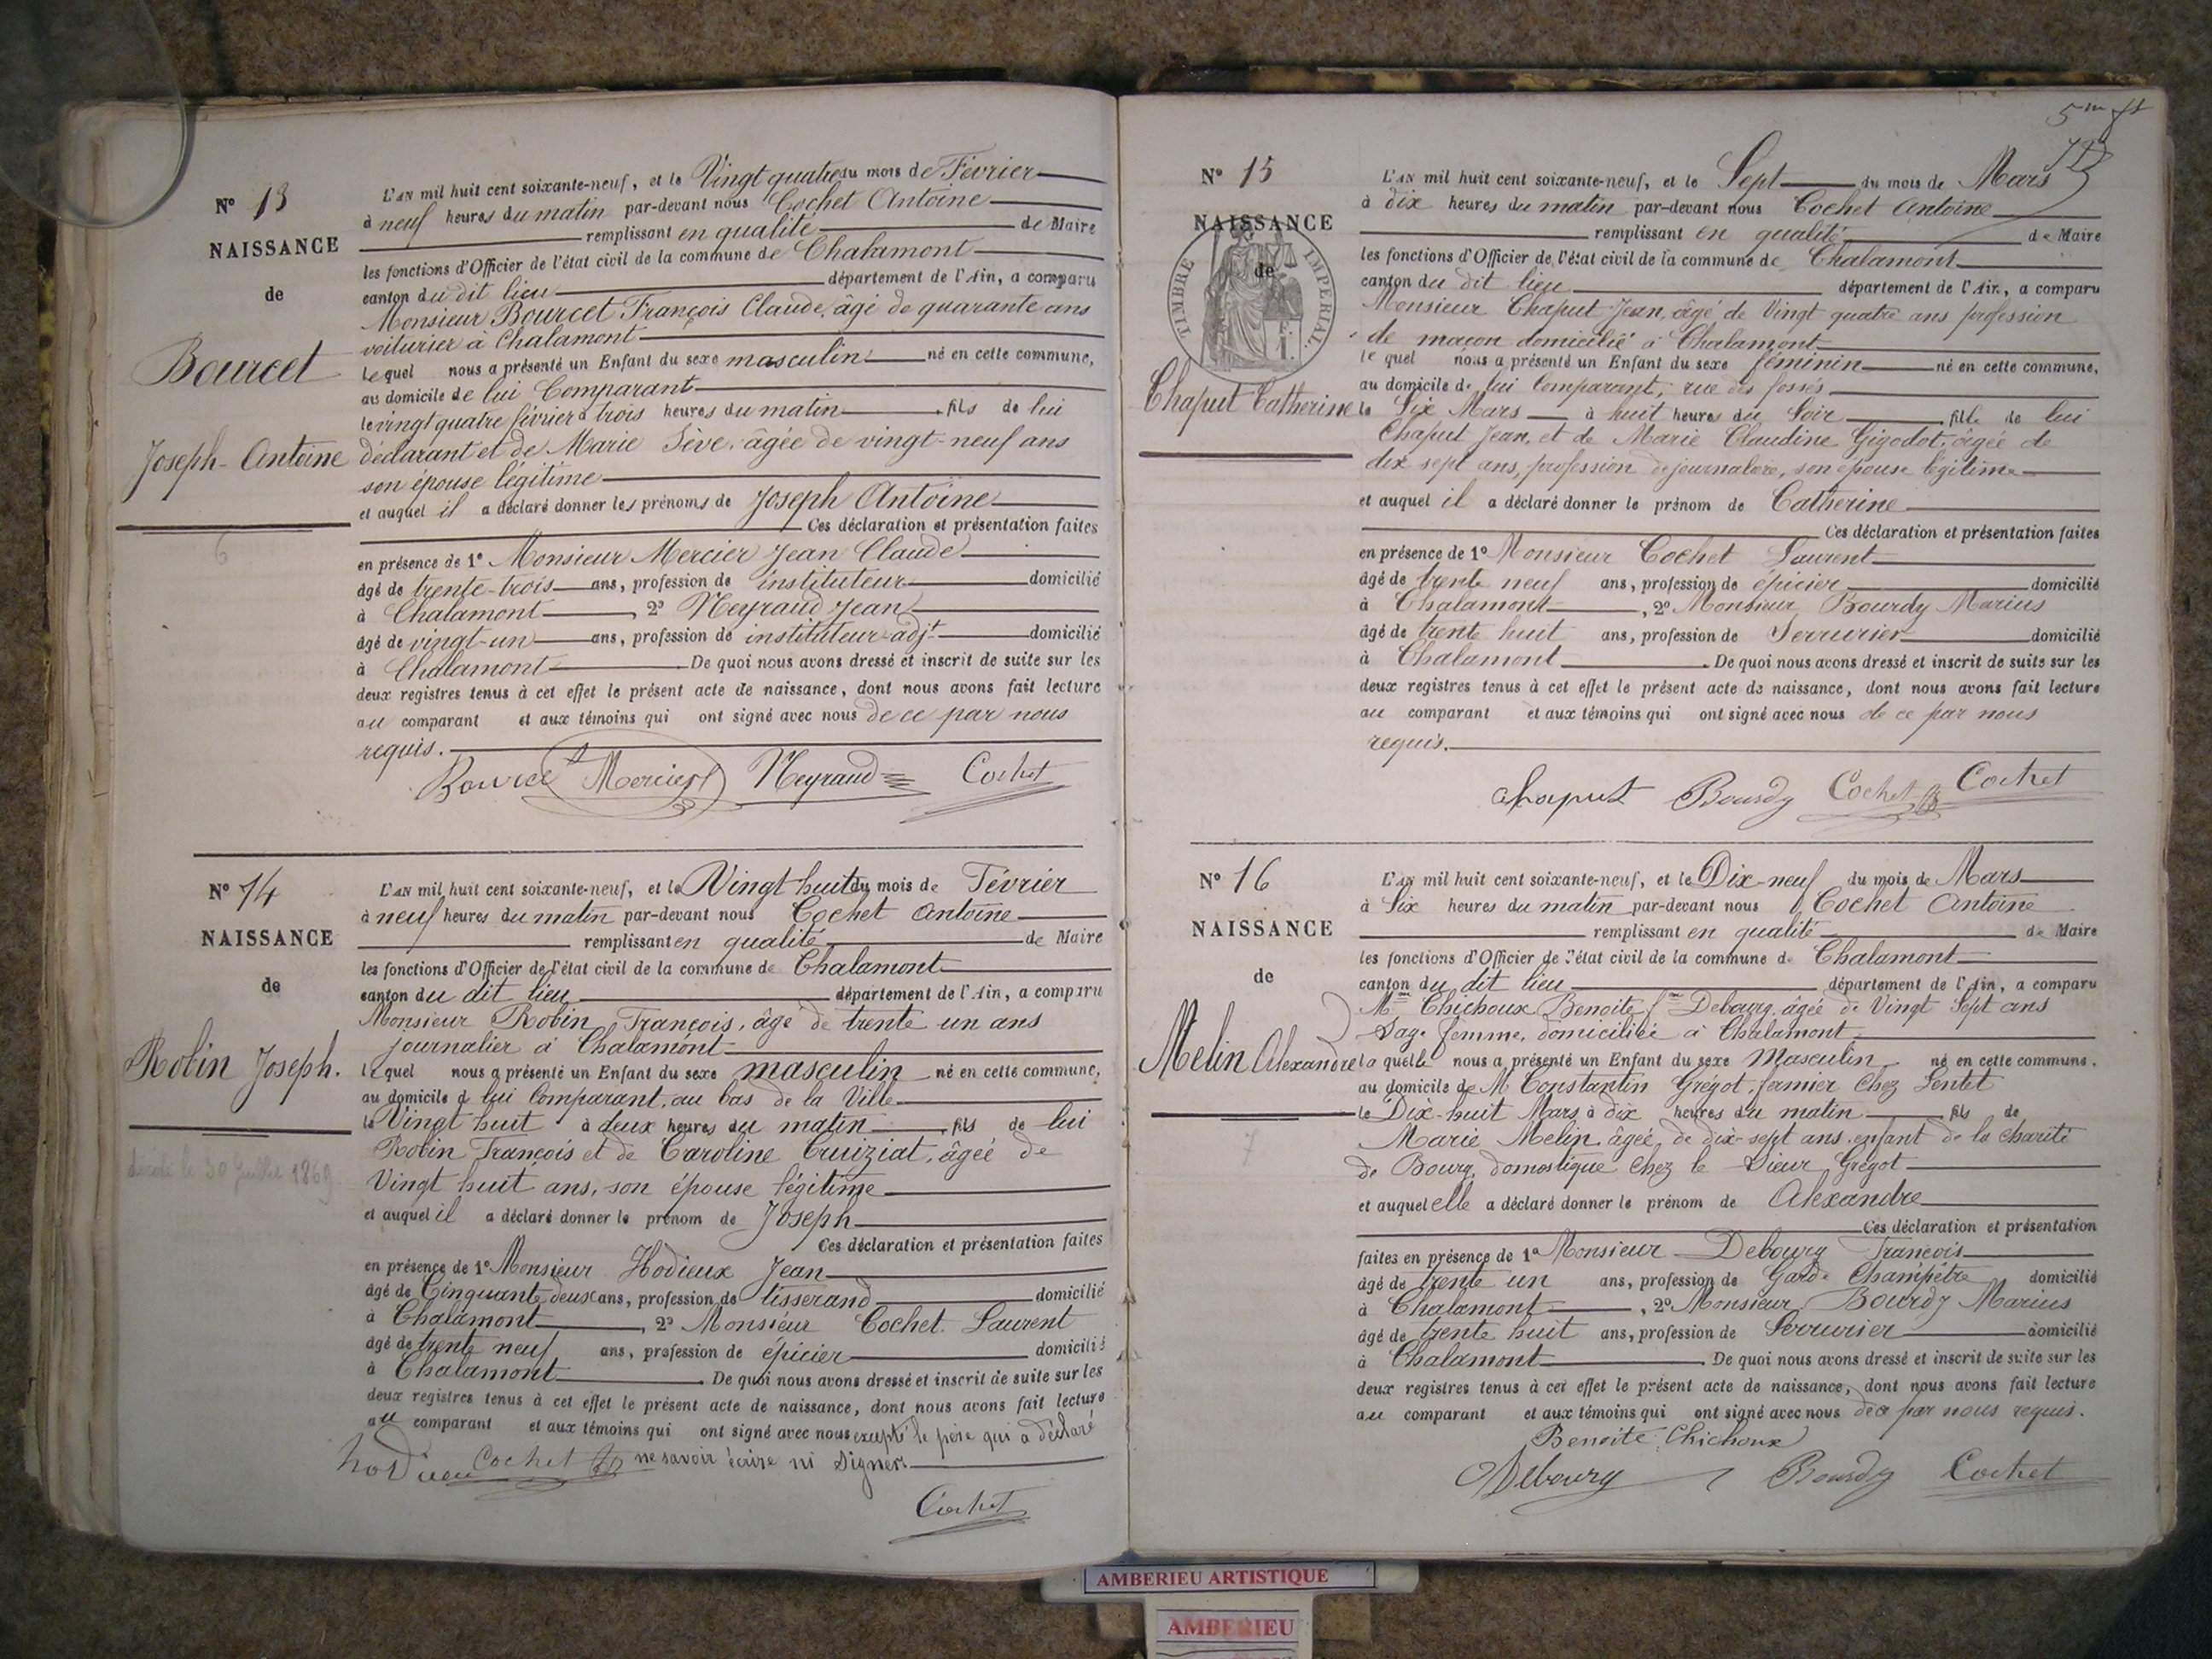 N° 13
NAISSANCE
de
Bourcet
Joseph-Antoine
6
L'an mil huit cent soixante-neuf, et le Vingt quatre du mois de Février
à neuf heures du matin par-devant nous Cochet Antoine
remplissant en qualité de Maire
les fonctions d'Officier de l'état civil de la commune de Chalamont
canton du dit lieu département de l'Ain, a comparu
Monsieur Bourcet François Claude, âgé de quarante ans
voiturier à Chalamont
lequel nous a présenté un Enfant du sexe masculin né en cette commune,
au domicile de lui Comparant
le vingt quatre février à trois heures du matin fils de lui
déclarant et de Marie Sève, âgée de vingt-neuf ans
son épouse légitime
et auquel il a déclaré donner les prénoms de Joseph Antoine
Ces déclaration et présentation faites
en présence de 1° Monsieur Mercier Jean Claude
âgé de trente-trois ans, profession de instituteur domicilié
à Chalamont, 2° Neyraud Jean
âgé de vingt-un ans, profession de instituteur-adjt domicilié
à Chalamont De quoi nous avons dressé et inscrit de suite sur les
deux registres tenus à cet effet le présent acte de naissance, dont nous avons fait lecture
au comparant et aux témoins qui ont signé avec nous de ce par nous
requis.
Bource Mercier Neyraud Cochet
N° 14
NAISSANCE
de
Robin Joseph.
décédé le 30 Juillet 1869
L'an mil huit cent soixante-neuf, et le Vingt huit du mois de Février
à neuf heures du matin par-devant nous Cochet Antoine
remplissant en qualité de Maire
les fonctions d'Officier de l'état civil de la commune de Chalamont
canton du dit lieu département de l'Ain, a comparu
Monsieur Robin François, âgé de trente un ans
journalier à Chalamont
lequel nous a présenté un Enfant du sexe masculin né en cette commune,
au domicile de lui Comparant, au bas de la Ville
le Vingt huit à deux heures du matin, fils de lui
Robin François et de Caroline Cruiziat, âgée de
Vingt huit ans, son épouse légitime
et auquel il a déclaré donner le prénom de Joseph
Ces déclaration et présentation faites
en présence de 1° Monsieur Hodieux Jean
âgé de Cinquante deux ans, profession de tisserand domicilié
à Chalamont, 2° Monsieur Cochet Laurent
âgé de trente neuf ans, profession de épicier domicilié
à Chalamont. De quoi nous avons dressé et inscrit de suite sur les
deux registres tenus à cet effet le présent acte de naissance, dont nous avons fait lecture
au comparant et aux témoins qui ont signé avec nous excepté le père qui a déclaré
ne savoir écrire ni signer.
hodieu Cochet
Cochet
5me ft
N° 15
NAISSANCE
de
TIMBRE IMPERIAL
Chaput Catherine
L'an mil huit cent soixante-neuf, et le Sept du mois de Mars
à dix heures du matin par-devant nous Cochet Antoine
remplissant en qualité de Maire
les fonctions d'Officier de l'état civil de la commune de Chalamont
canton du dit lieu département de l'Ain, a comparu
Monsieur Chaput Jean, âgé de Vingt quatre ans profession
de maçon domicilié à Chalamont
le quel nous a présenté un Enfant du sexe féminin né en cette commune,
au domicile de lui Comparant, rue des fossés
le Six Mars à huit heures du Soir fille de lui
Chaput Jean, et de Marie Claudine Gigodot, âgée de
dix sept ans, profession de journalère, son épouse légitime
et auquel il a déclaré donner le prénom de Catherine
Ces déclaration et présentation faites
en présence de 1° Monsieur Cochet Laurent
âgé de trente neuf ans, profession de épicier domicilié
à Chalamont, 2° Monsieur Bourdy Marius
âgé de trente huit ans, profession de Serrurier domicilié
à Chalamont. De quoi nous avons dressé et inscrit de suite sur les
deux registres tenus à cet effet le présent acte de naissance, dont nous avons fait lecture
au comparant et aux témoins qui ont signé avec nous de ce par nous
requis.
Chaput Bourdy Cochet Cochet
N° 16
NAISSANCE
de
Melin Alexandre
7
L'an mil huit cent soixante-neuf, et le Dix-neuf du mois de Mars
à Six heures du matin par-devant nous Cochet Antoine
remplissant en qualité de Maire
les fonctions d'Officier de l'état civil de la commune de Chalamont
canton du dit lieu département de l'Ain, a comparu
Mme Chichoux Benoite fme Debourg, âgée de Vingt Sept ans
Sage femme, domiciliée à Chalamont
la quelle nous a présenté un Enfant du sexe Masculin né en cette commune.
au domicile de M Constantin Grégot, fermier Chez Lentet
le Dix-huit Mars à dix heures du matin fils de
Marie Melin, âgée de dix-sept ans, enfant de la charité
de Bourg, domestique Chez le Sieur Grégot
et auquel elle a déclaré donner le prénom de Alexandre
Ces déclaration et présentation
faites en présence de 1° Monsieur Debourg François
âgé de trente un ans, profession de Garde Champêtre domicilié
à Chalamont, 2° Monsieur Bourdy Marius
âgé de trente huit ans, profession de Serrurier domicilié
à Chalamont. De quoi nous avons dressé et inscrit de suite sur les
deux registres tenus à cet effet le présent acte de naissance, dont nous avons fait lecture
au comparant et aux témoins qui ont signé avec nous de ce par nous requis.
Benoite Chichoux
Debourg Bourdy Cochet
AMBERIEU ARTISTIQUE
AMBERIEU